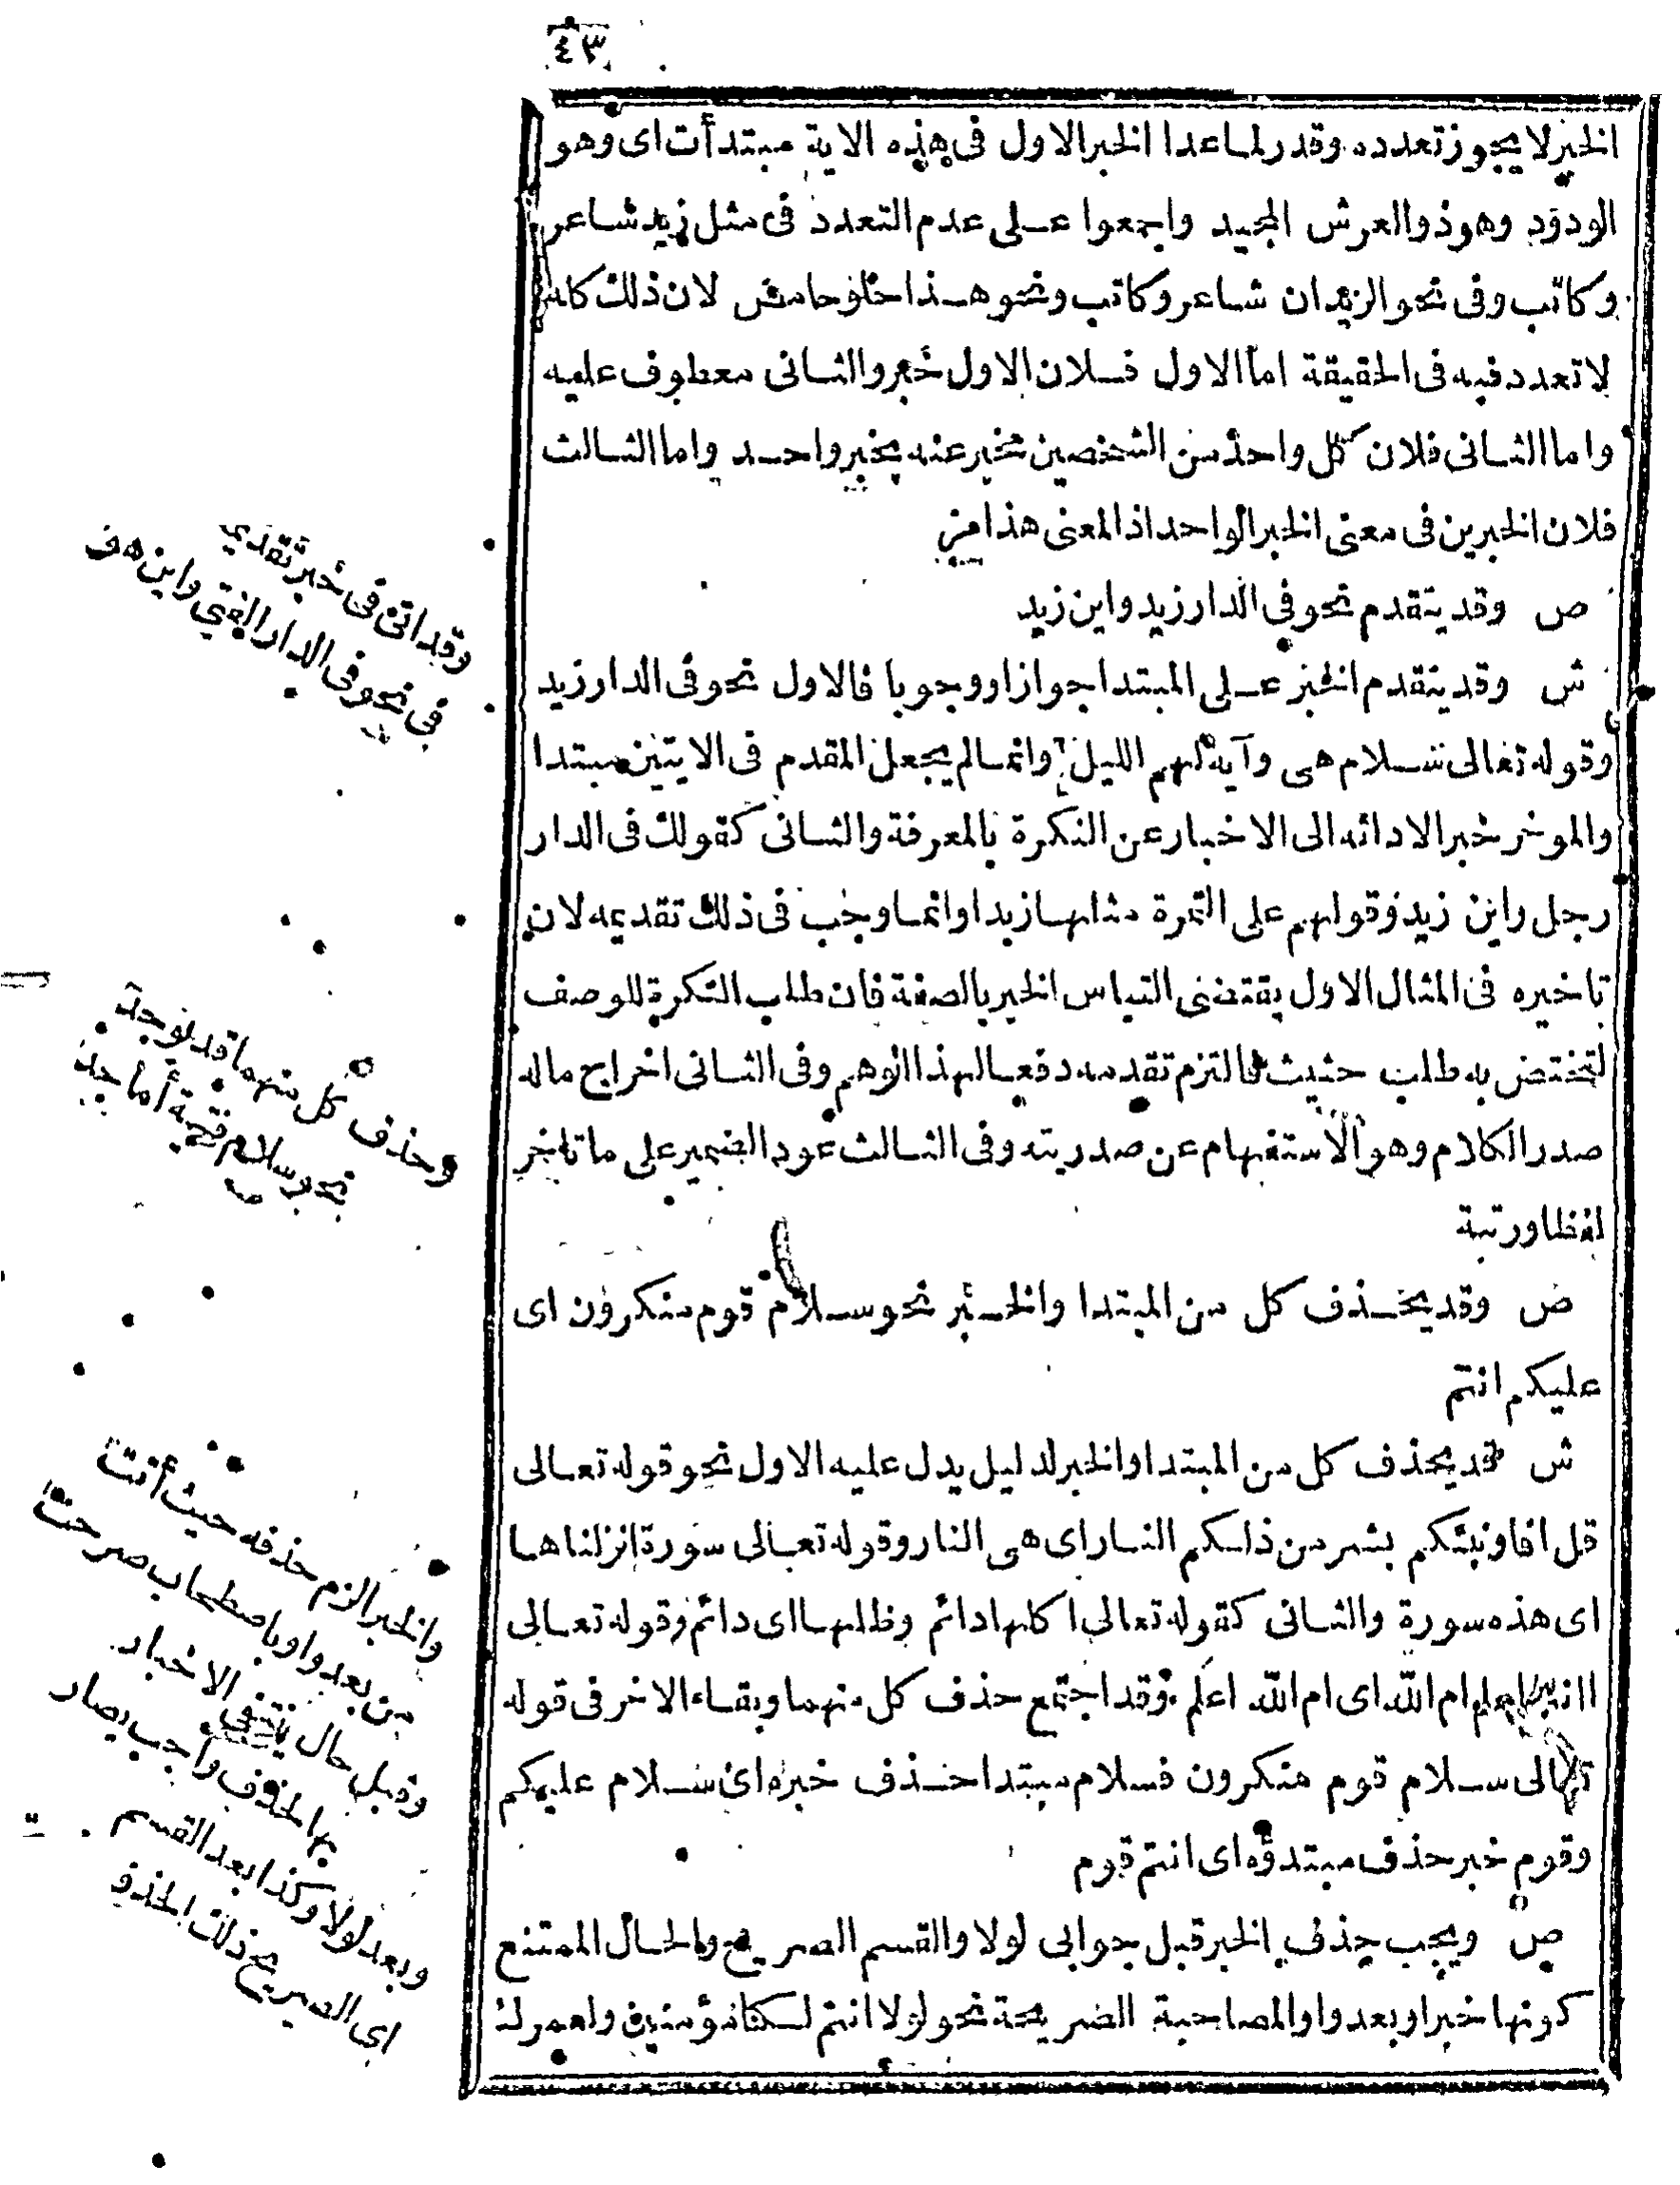 ٤٣
الخبر لا يجوز تعدده وقدر لما عدا الخبر الاول فى هذه الاية مبتدأت اى وهو
الودود وهو ذو العرش المجيد واجمعوا على عدم التعدد فى مثل زيد شاعر
وكاتب وفى نحو الزيدان شاعر وكاتب ونحو هذا حلو حامض لان ذلك كله
لا تعدد فيه فى الحقيقة اما الاول فلان الاول خبر والثانى معطوف عليه
واما الثانى فلان كل واحد من الشخصين مخبر عنه بخبر واحد واما الثالث
فلان الخبرين فى معنى الخبر الواحد اذ المعنى هذا مز
ص وقد يتقدم نحو فى الدار زيد واين زيد
ش وقد يتقدم الخبر على المبتدا جوازا ووجوبا فالاول نحو فى الدار زيد
وقوله تعالى سلام هى وآية لهم الليل وانما لم يجعل المقدم فى الايتين مبتدا
والموخر خبرا لادائه الى الاخبار عن النكرة بالمعرفة والثانى كقولك فى الدار
رجل واين زيد وقولهم على التمرة مثلها زبدا وانما وجب فى ذلك تقديمه لان
تاخيره فى المثال الاول يقتضى التباس الخبر بالصفة فان طلب النكرة للوصف
لتختص به طلب حثيث فالتزم تقديمه دفعا لهذا الوهم وفى الثانى اخراج ماله
صدر الكلام وهو الاستفهام عن صدريته وفى الثالث عود الضمير على ما تاخر
لفظا ورتبة
ص وقد يحذف كل من المبتدا والخبر نحو سلام قوم منكرون اى
عليكم انتم
ش قد يحذف كل من المبتدا والخبر لدليل يدل عليه الاول نحو قوله تعالى
قل افاونبئكم بشر من ذلكم النار اى هى النار وقوله تعالى سورة انزلناها
اى هذه سورة والثانى كقوله تعالى اكلها دائم وظلها اى دائم وقوله تعالى
اانتم اعلم ام الله اى ام الله اعلم وقد اجتمع حذف كل منهما وبقاء الاخر فى قوله
تعالى سلام قوم منكرون فسلام مبتدا حذف خبره اى سلام عليكم
وقوم خبر حذف مبتدؤه اى انتم قوم
ص ويجب حذف الخبر قبل جوابى لولا والقسم الصريح والحال الممتنع
كونها خبرا وبعد واو المصاحبة الصريحة نحو لولا انتم لكنا مؤمنين ولعمرك
وقد اتى فى خبر تقدي
فى نحو فى الدار الفتى واين هو
وحذف كل منهما قد توجد
نحو سلام
والخبر الزم حذفه حيث أنت
من بعد واو باصطحاب صرحت
وقبل حال ينتفى الاخبار
بها الحذف واجب يصار
وبعد لولا وكذا بعد القسم
اى الصريح ذلك الحذف